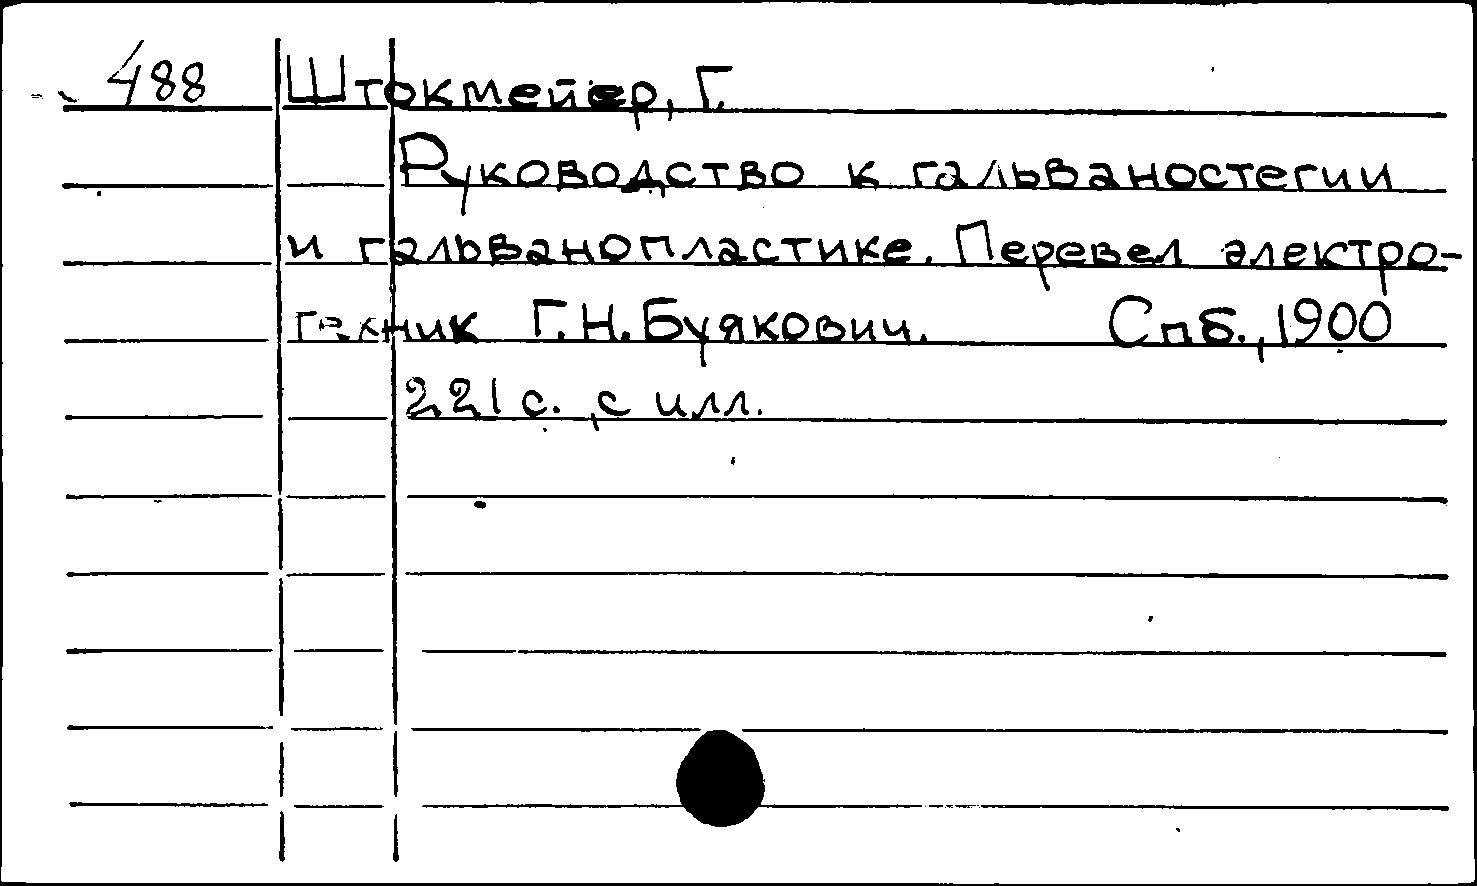 488 Штокмейер, Г.
Руководство к гальваностегии
и гальванопластике. Перевел электро-
техник Г.Н. Буякович. Спб., 1900
221 с., с илл.